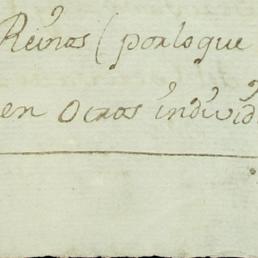 Reinos ( por lo que
en Otros individ